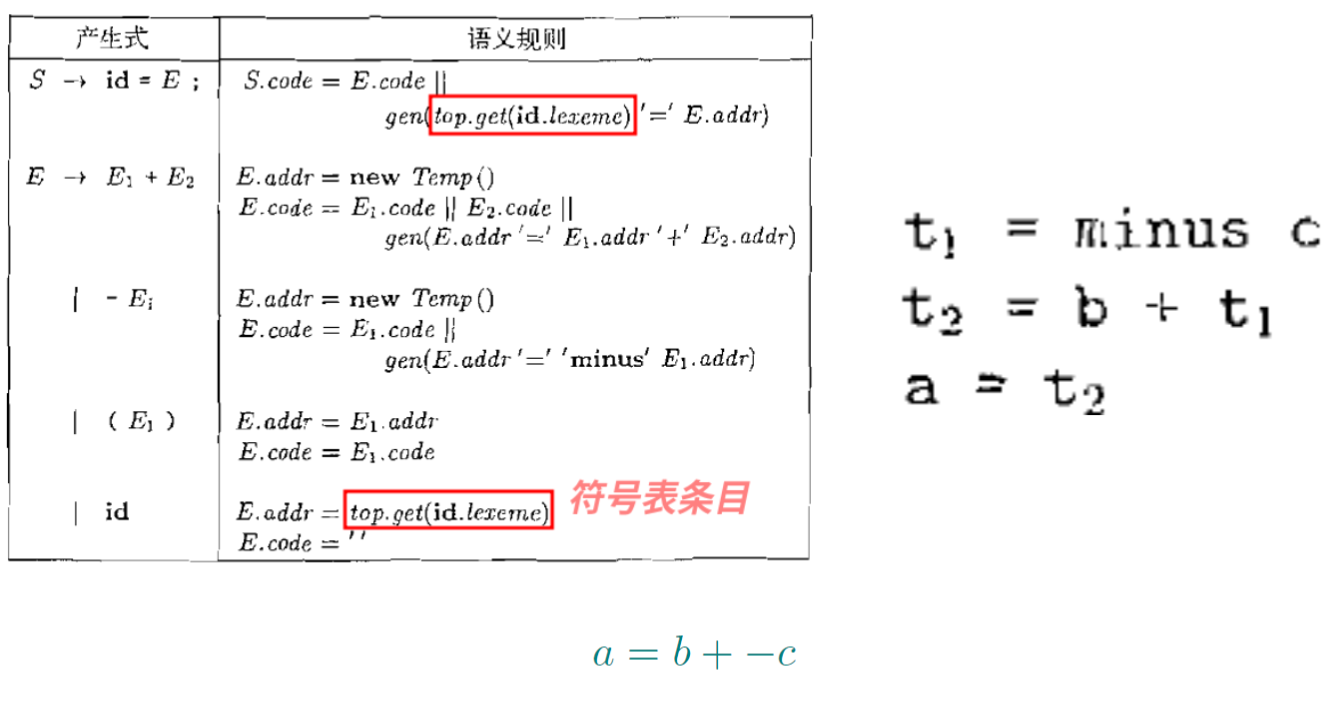 产生式 语义规则
S → id = E ; S.code = E.code ||
gen(top.get(id.lexeme) '=' E.addr)
E → E₁ + E₂ E.addr = new Temp()
E.code = E₁.code || E₂.code ||
gen(E.addr '=' E₁.addr '+' E₂.addr)
| - E₁ E.addr = new Temp()
E.code = E₁.code ||
gen(E.addr '=' 'minus' E₁.addr)
| ( E₁ ) E.addr = E₁.addr
E.code = E₁.code
| id E.addr = top.get(id.lexeme)
E.code = ''
符号表条目
t₁ = minus c
t₂ = b + t₁
a = t₂
a = b + −c